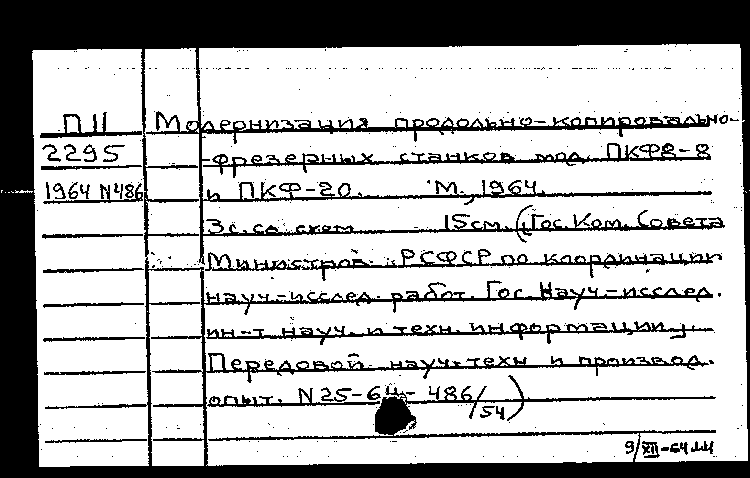 П II Модернизация продольно-копировально-
2295 -фрезерных станков мод. ПКФ8-8
1964 N486 и ПКФ-20. М., 1964.
3с. со схем 15см. (Гос. Ком. Совета
Министров РСФСР по координации
науч.-исслед. работ. Гос. Науч.-исслед.
ин-т науч. и техн. информации.
Передовой науч.-техн и производ.
опыт. N25-64-486/54)
9/XII-64